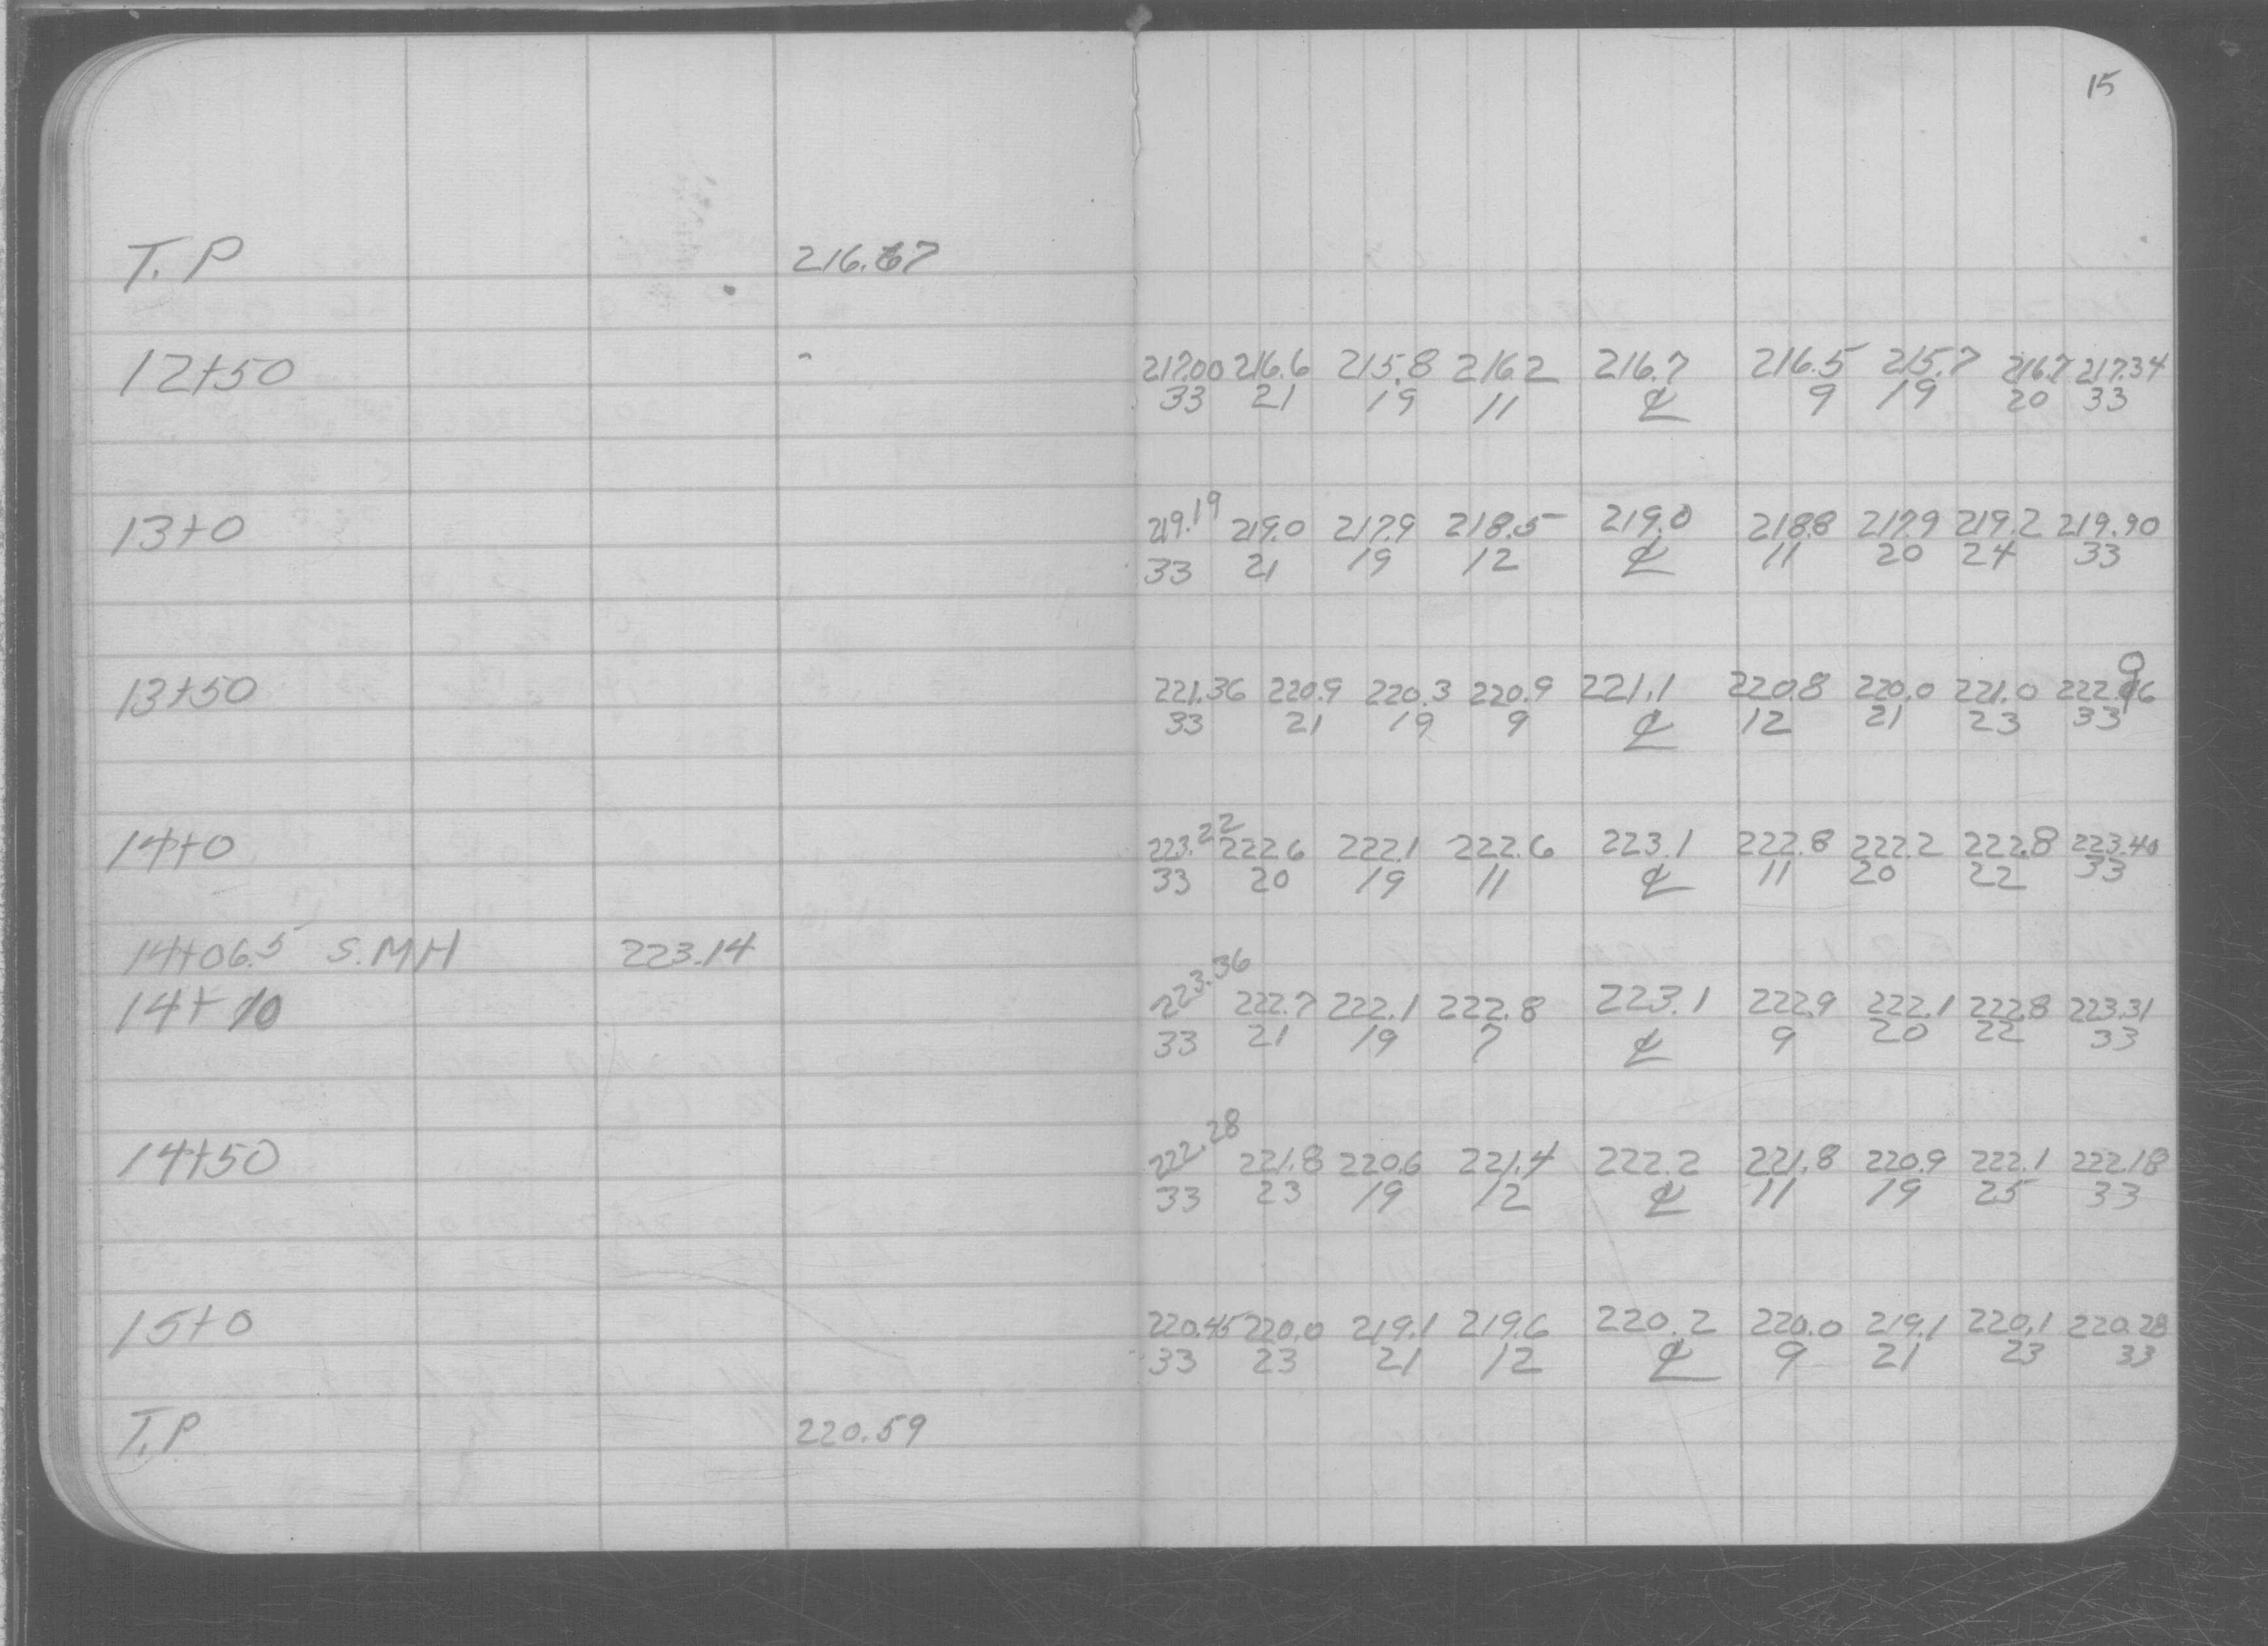 15
T.P 216.67
12+50 217.00 216.6 215.8 216.2 216.7 216.5 215.7 216.7 217.34
33 21 19 11 ℄ 9 19 20 33
13+0 219.19 219.0 217.9 218.5 219.0 218.8 217.9 219.2 219.90
33 21 19 12 ℄ 11 20 24 33
13+50 221.36 220.9 220.3 220.9 221.1 220.8 220.0 221.0 222.06
33 21 19 9 ℄ 12 21 23 33
14+0 223.22 222.6 222.1 222.6 223.1 222.8 222.2 222.8 223.40
33 20 19 11 ℄ 11 20 22 33
14+06.5 S.MH 223.14
14+10 223.36 222.7 222.1 222.8 223.1 222.9 222.1 222.8 223.31
33 21 19 7 ℄ 9 20 22 33
14+50 222.28 221.8 220.6 221.4 222.2 221.8 220.9 222.1 222.18
33 23 19 12 ℄ 11 19 25 33
15+0 220.45 220.0 219.1 219.6 220.2 220.0 219.1 220.1 220.28
33 23 21 12 ℄ 9 21 23 33
T.P 220.59